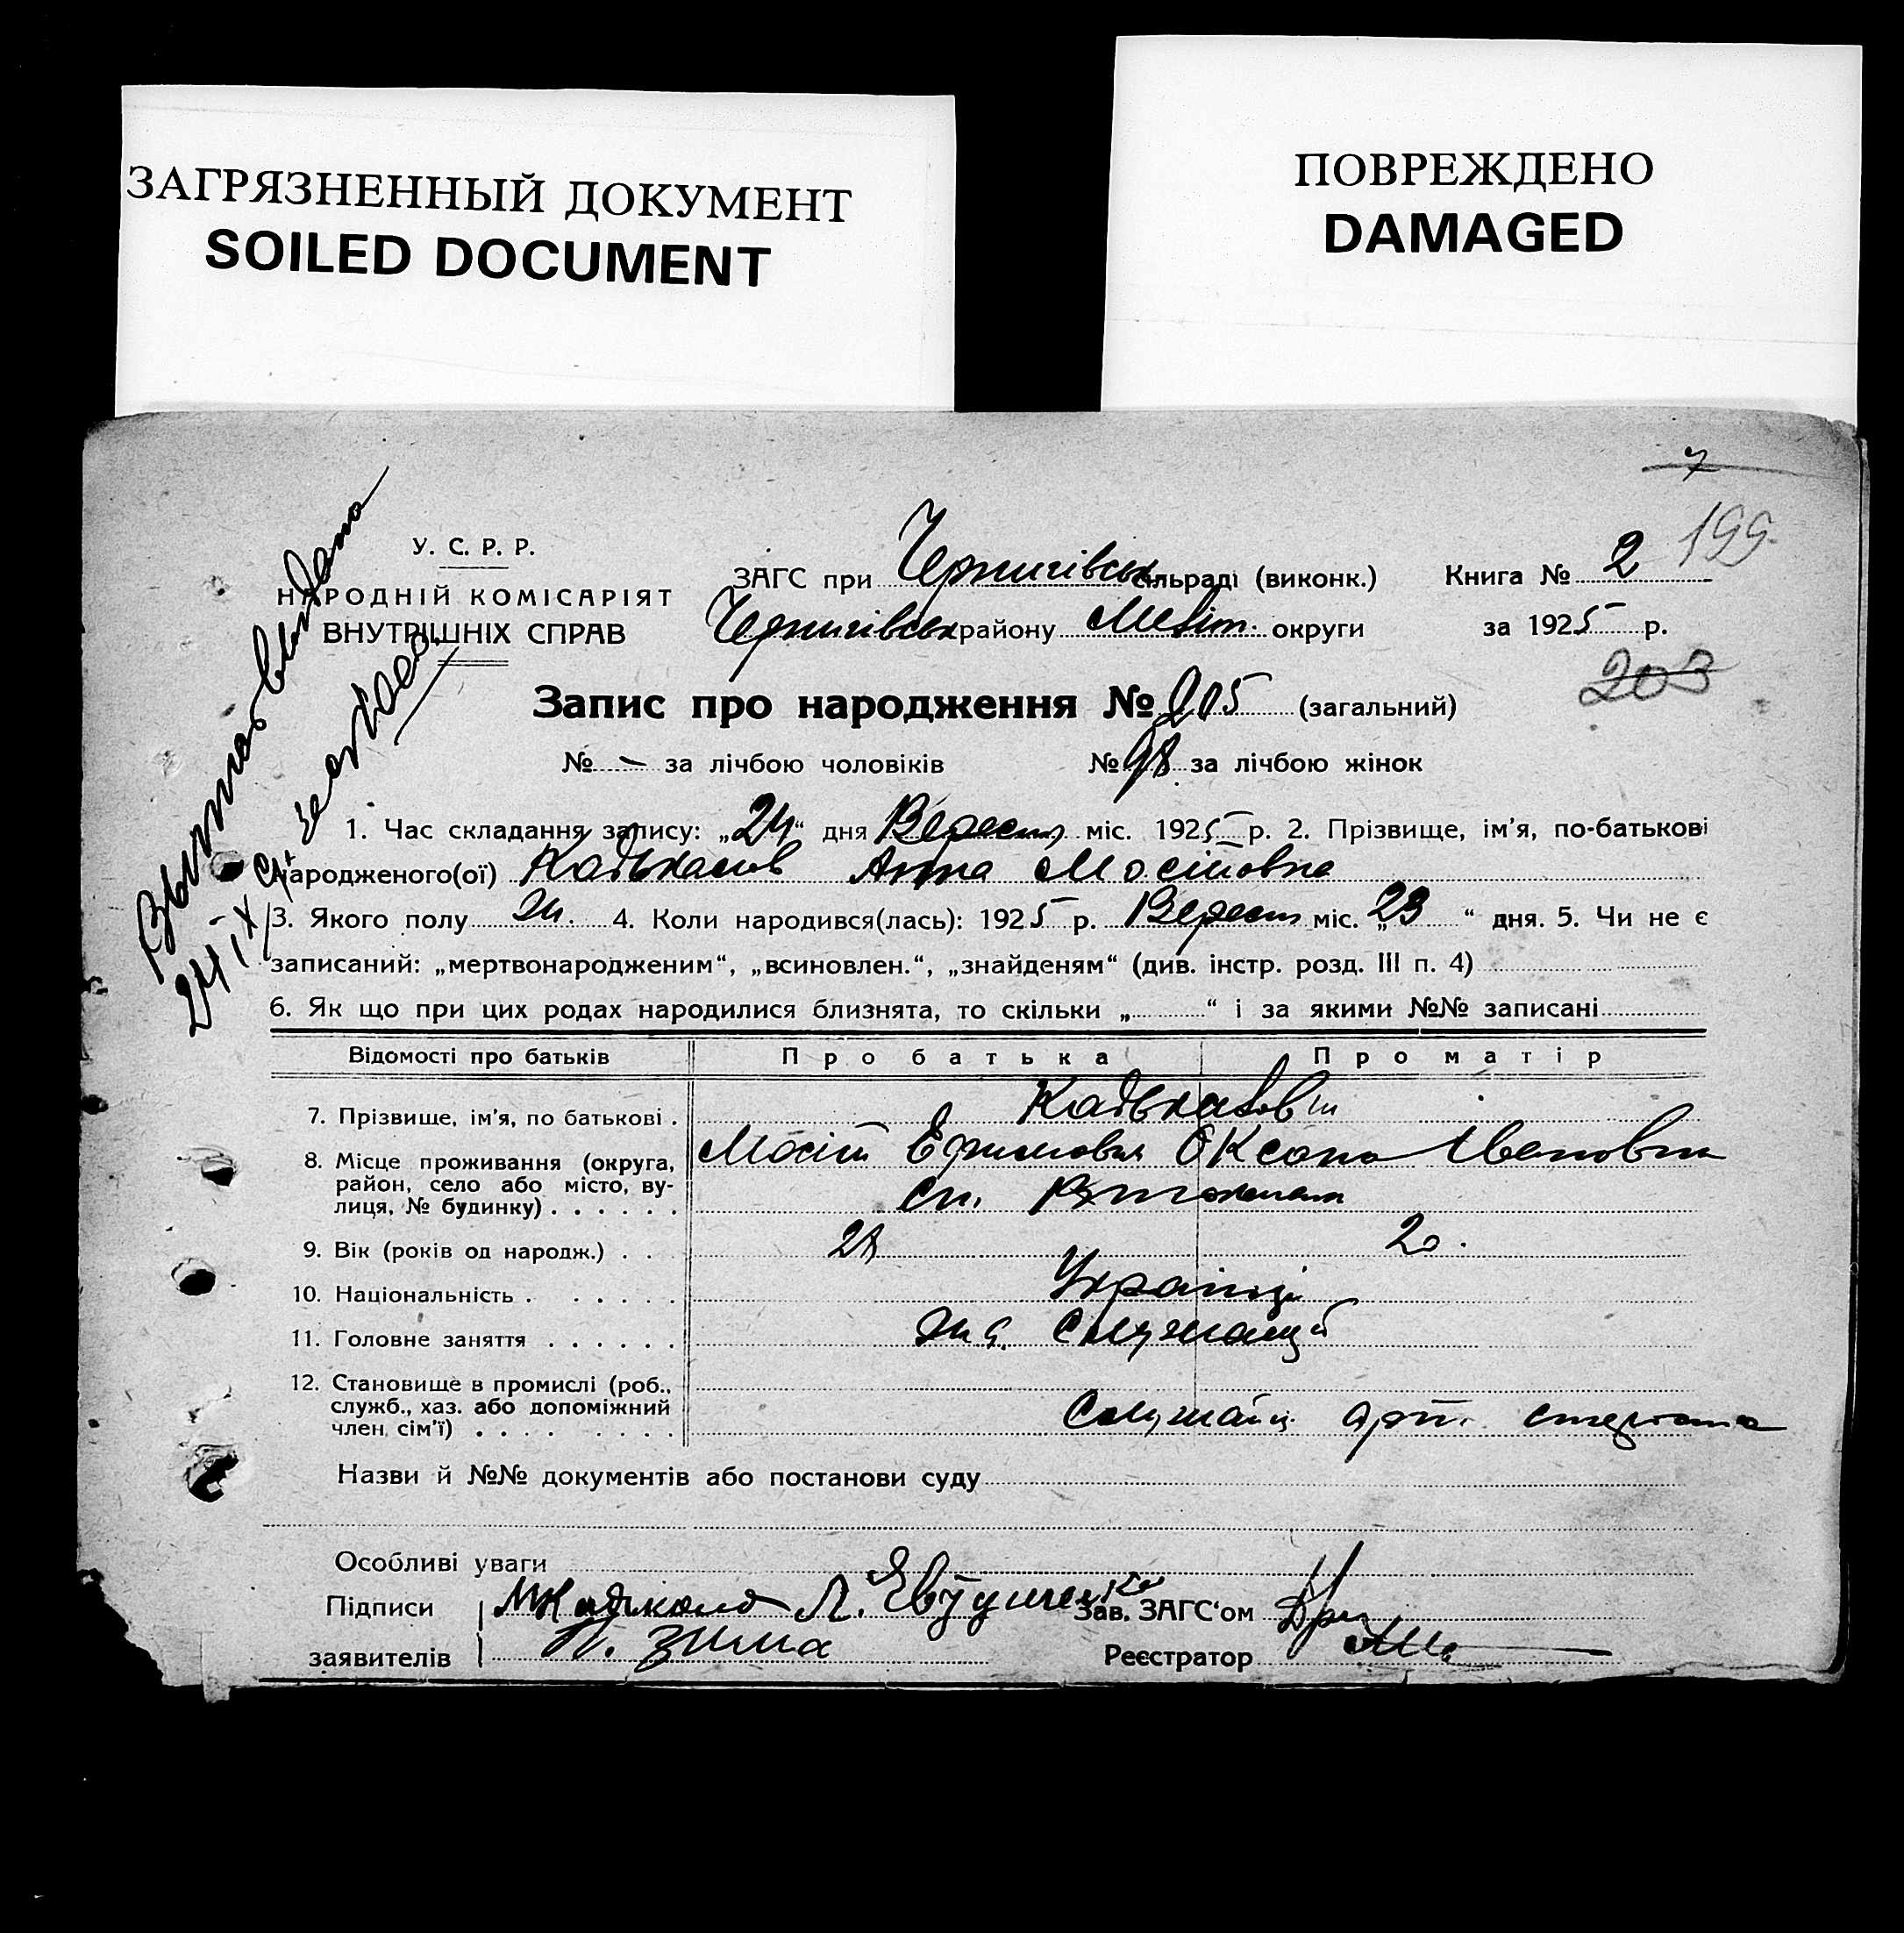 ЗАГРЯЗНЕННЫЙ ДОКУМЕНТ
SOILED DOCUMENT
ПОВРЕЖДЕНО
DAMAGED
7
199
У. С. Р. Р.
НАРОДНІЙ КОМІСАРІЯТ
ВНУТРІШНІХ СПРАВ
ЗАГС при Чернигівськ сільраді (виконк.) Книга № 2
Чернигівськ району Меліт. округи за 1925 р.
203
Запис про народження № 205 (загальний)
№ — за лічбою чоловіків № 98 за лічбою жінок
1. Час складання запису: „24“ дня Вересня міс. 1925 р. 2. Прізвище, ім'я, по-батькові
народженого(ої) Анна Мосійовна
3. Якого полу 4. Коли народився(лась): 1925 р. Вересня міс. „23“ дня. 5. Чи не є
записаний: „мертвонародженим“, „всиновлен.“, „знайденям“ (див. інстр. розд. III п. 4)
6. Як що при цих родах народилися близнята, то скільки „ “ і за якими №№ записані
Відомості про батьків Про батька Про матір
7. Прізвище, ім'я, по батькові .
Мосій Ефимович Оксана Івановна
8. Місце проживання (округа, район, село або місто, ву-
лиця, № будинку) . . . . . .
9. Вік (років од народж.) . . 28 20.
10. Національність . . . . . . Україн
11. Головне заняття . . . . . . Служащий
12. Становище в промислі (роб.,
служб., хаз. або допоміжний
член сім'ї) . . . . . . . .
Назви й №№ документів або постанови суду
Особливі уваги
Підписи Л. Євтушенко Зав. ЗАГС'ом
заявителів П. Зима Реєстратор